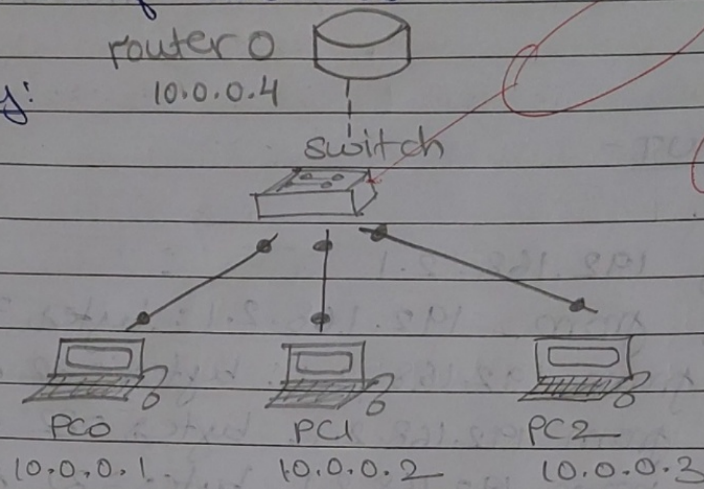 router 0
10.0.0.4
switch
PC0 PC1 PC2
10.0.0.1. 10.0.0.2 10.0.0.3